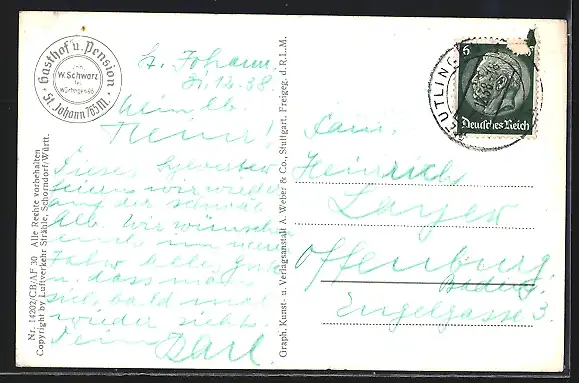 Gasthof u. Pension
W. Schwarz
St. Johann 765 M.
St. Johann,
31.12.38
Mein lb.
Heiner!
Diese Sylvester
feiern wir wieder
auf der schwäb
Alb. Wir wünschen
euch im neuen
Jahr alles Gute
u. dass man
sich bald mal
wieder sieht.
Dein Karl.
Nr. 14202/CB/AF 30 Alle Rechte vorbehalten
Copyright by Luftverkehr Strähle, Schorndorf/Württ.
Graph. Kunst- u. Verlagsanstalt A. Weber & Co., Stuttgart. Freigeg. d. R.L.M.
6
Deutsches Reich
REUTLING
Heinrich
Layer
Offenburg
Baden
Engelgasse 3.